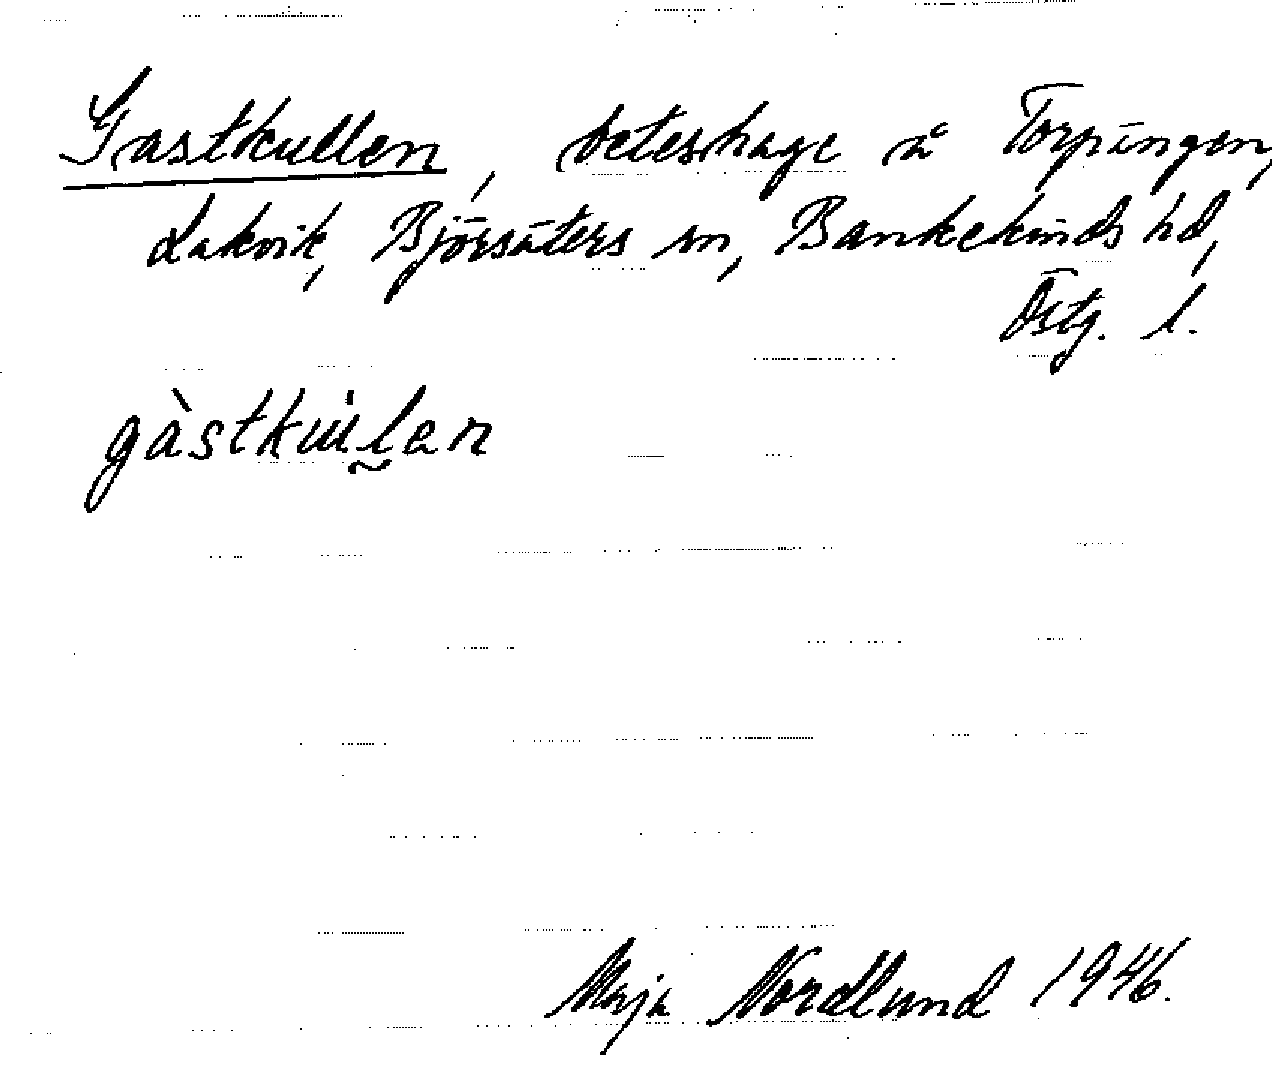 Gastkullen, beteshage å Torpängen,
Lakvik, Björsäters sn, Bankekinds hd,
Östg. l.
gàstkùlan
Maja Nordlund 1946.